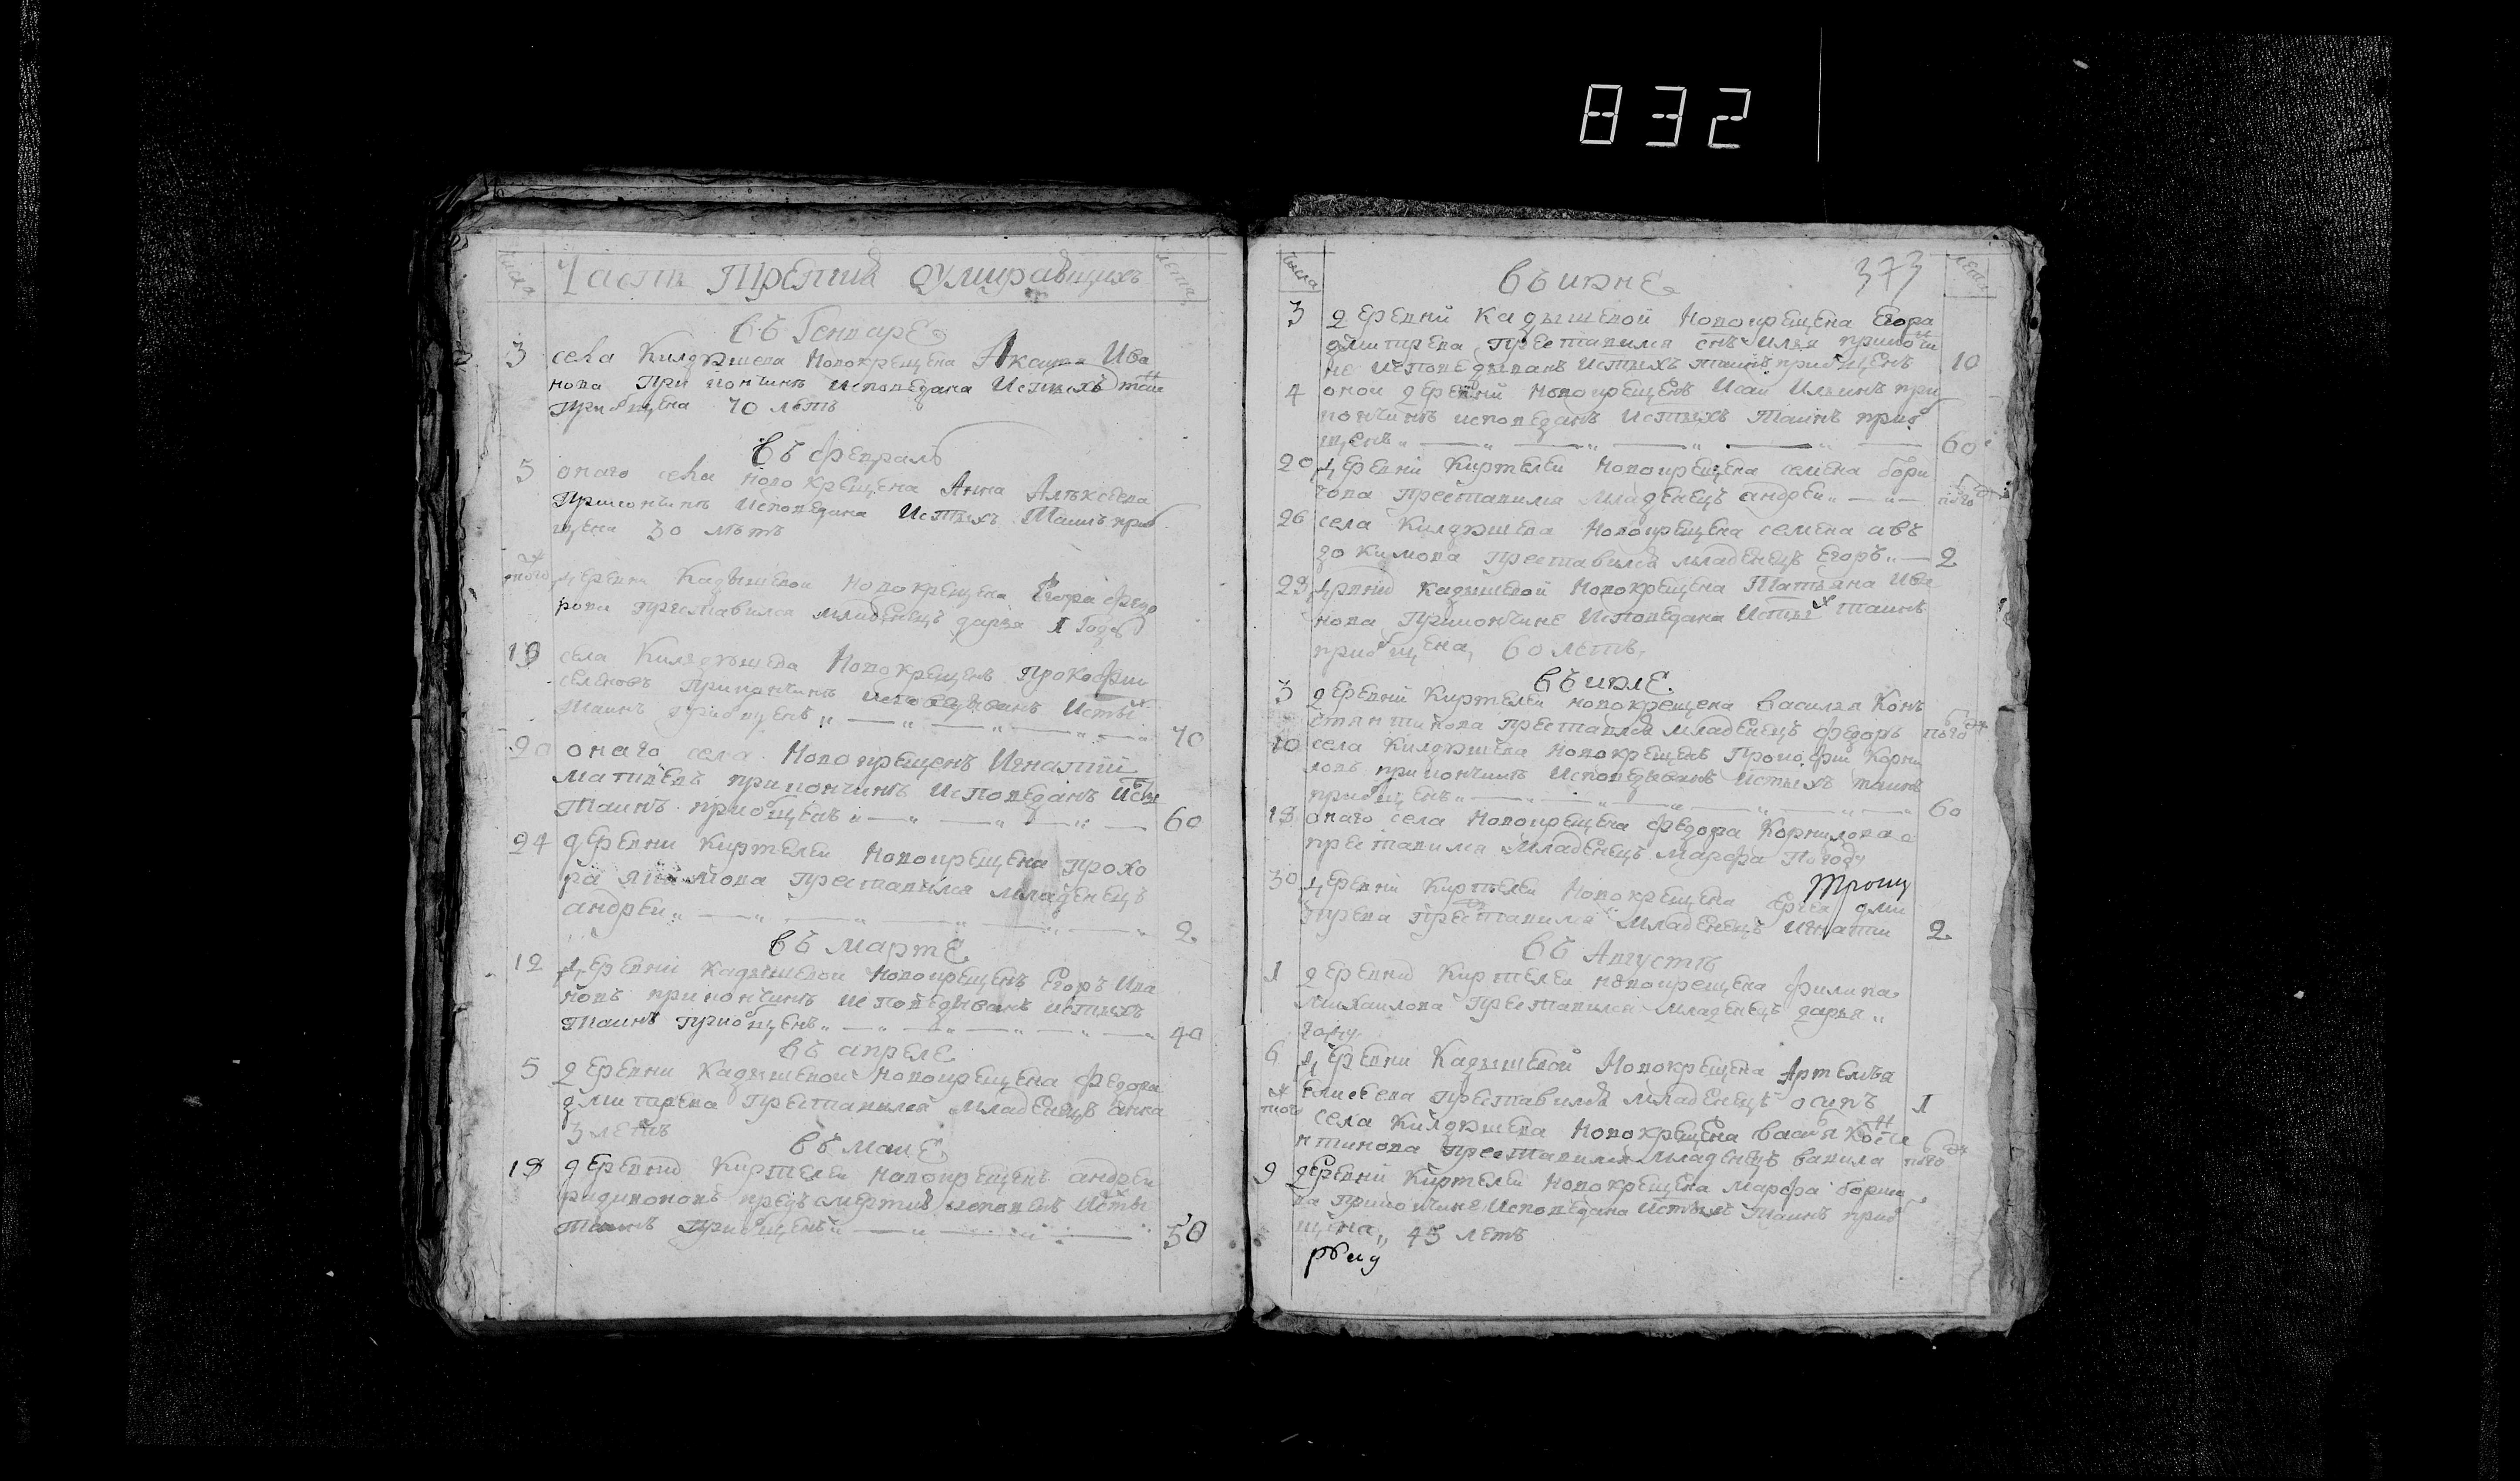 832
числа
Часть Третия Оумиравшихъ
лета
Въ Генваре
3 села Килдюшева новокрещена Акали Ива
нова При кончине исповедана и стыхъ таин
приобщена 70 летъ
Въ Феврале
5 онаго села новокрещена Анна Алексеева
При кончине исповедана и стыхъ Таинъ приоб
щена 30 летъ
тогож деревни Кадышевой новокрещена Егора Федо
рова преставился младенецъ дарья 1 годъ
19 села Килдюшева Новокрещенъ Прокофии
Семеновъ При кончине исповедыванъ и стых
Таинъ приобщенъ 70
20 онаго села Новокрещенъ Игнатий
Матвеевъ при кончине исповеданъ и стых
Таинъ приобщенъ 60
24 деревни Киртели новокрещена Прохо
ра преставился младенецъ
андреи 2
Въ Марте
12 деревни Кадышевой новокрещенъ Егоръ Ива
новъ при кончине исповедыванъ и стыхъ
Таинъ приобщенъ 40
Въ апреле
5 деревни Кадышевой новокрещена Федора
дмитрева преставился младенецъ анна
3 летъ
Въ мае
19 деревни Киртели новокрещенъ андреи
предъ смертию исповеданъ и стых
Таинъ приобщенъ 50
числа
Въ июне
373
лета
3 деревни Кадышевой новокрещена Егора
дмитрева преставился снъ Илья при кон
не исповедыванъ и стыхъ таинъ приобщенъ 10
4 оной деревни новокрещенъ Исаи Ильинъ при
кончине исповеданъ и стыхъ Таинъ приоб
щенъ 60
20 деревни Киртели новокрещена семена бори
сова преставился младенецъ андреи полго
26 села Килдюшева новокрещена семена авъ
докимова преставился младенецъ Егоръ 2
29 деревни Кадышевой новокрещена Татьяна Ива
нова При кончине исповедана и стых таинъ
приобщена 60 летъ
Въ июле
3 деревни Киртели новокрещена василья Конъ
стянтинова преставился младенецъ федоръ полго
10 села Килдюшева новокрещенъ Прокофии Корни
ловъ при кончине исповедыванъ и стыхъ таинъ
приобщенъ 60
19 онаго села новокрещена федора Корнилова
преставился младенецъ марфа Полгоду
30 деревни Киртели новокрещена Сергея дми
трева преставился младенецъ игнатии 2
Въ Августе
1 деревни Киртели новокрещена филипа
михаилова преставился младенецъ дарья
году
6 деревни Кадышевой новокрещена Артемья
Елисеева преставился младенецъ осипъ 1
тогож села Килдюшева новокрещена васья Конста
нтинова преставился младенецъ вавила полго
9 деревни Киртели новокрещена марфа борисо
ва при кончине исповедана и стыхъ Таинъ приоб
щена 45 летъ